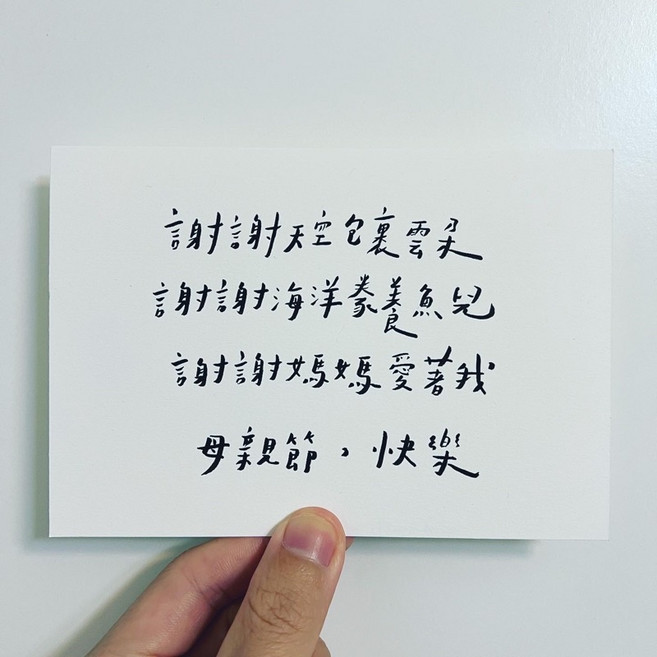 謝謝天空包裹雲朵
謝謝海洋豢養魚兒
謝謝媽媽愛著我
母親節，快樂